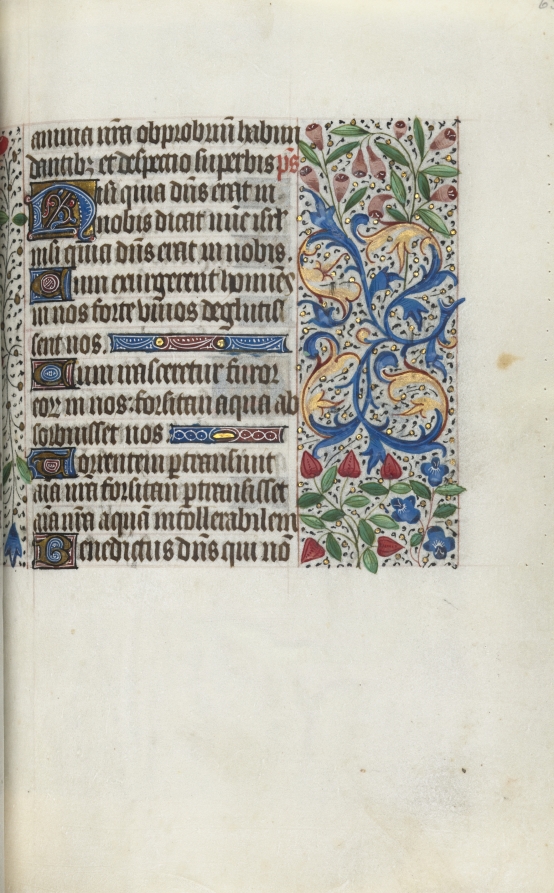 anima nr̄a obprobriū habun
dantibꝫ et despectio superbis p̄s
Nisi quia dn̄s erat in
nobis dicat nūc isrl̄
nisi quia dn̄s erat in nobis.
Cum exurgerent homines
in nos forte viuos deglutiss
sent nos.
Cum irasceretur furor
eoꝝ in nos: forsitan aqua ab
sorbuisset nos
Torrentem ꝑtransiuit
aīa nr̄a forsitan ꝑtransisset
aīa nr̄a aquā intollerabilem
Benedictus dn̄s qui nō